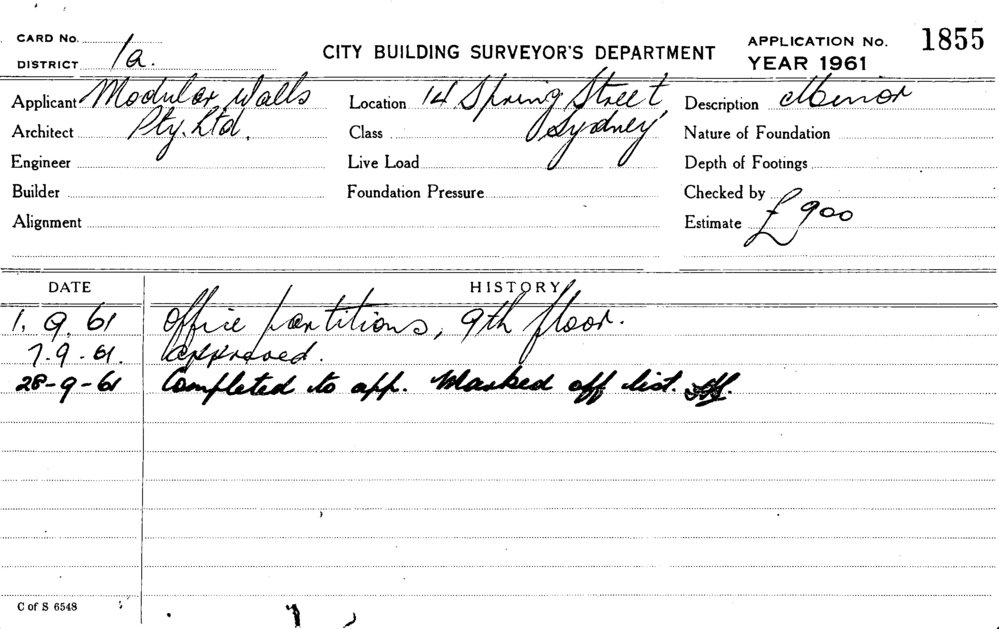 CARD No.
DISTRICT 1a.
CITY BUILDING SURVEYOR'S DEPARTMENT
APPLICATION No. 1855
YEAR 1961
Applicant Modular Walls Location 14 Spring Street, Description Minor
Architect Pty. Ltd. Class Sydney Nature of Foundation
Engineer Live Load Depth of Footings
Builder Foundation Pressure Checked by
Alignment Estimate £900
DATE HISTORY
1. 9. 61 Office partitions, 9th floor.
7-9-61. Approved.
28-9-61 Completed to app. Marked off list.
C of S 6548